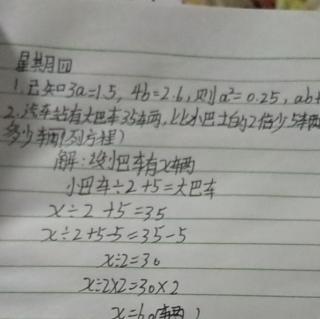 星期四
1.已知3a=1.5, 4b=2.6,则a²=0.25, ab+
2.汽车站有大巴车35车两,比小巴士的2倍少5车两
多少车两(列方程)
解:设小巴车有x车两
小巴车÷2+5=大巴车
x÷2+5=35
x÷2+5-5=35-5
x÷2=30
x÷2×2=30×2
x=60(车两)